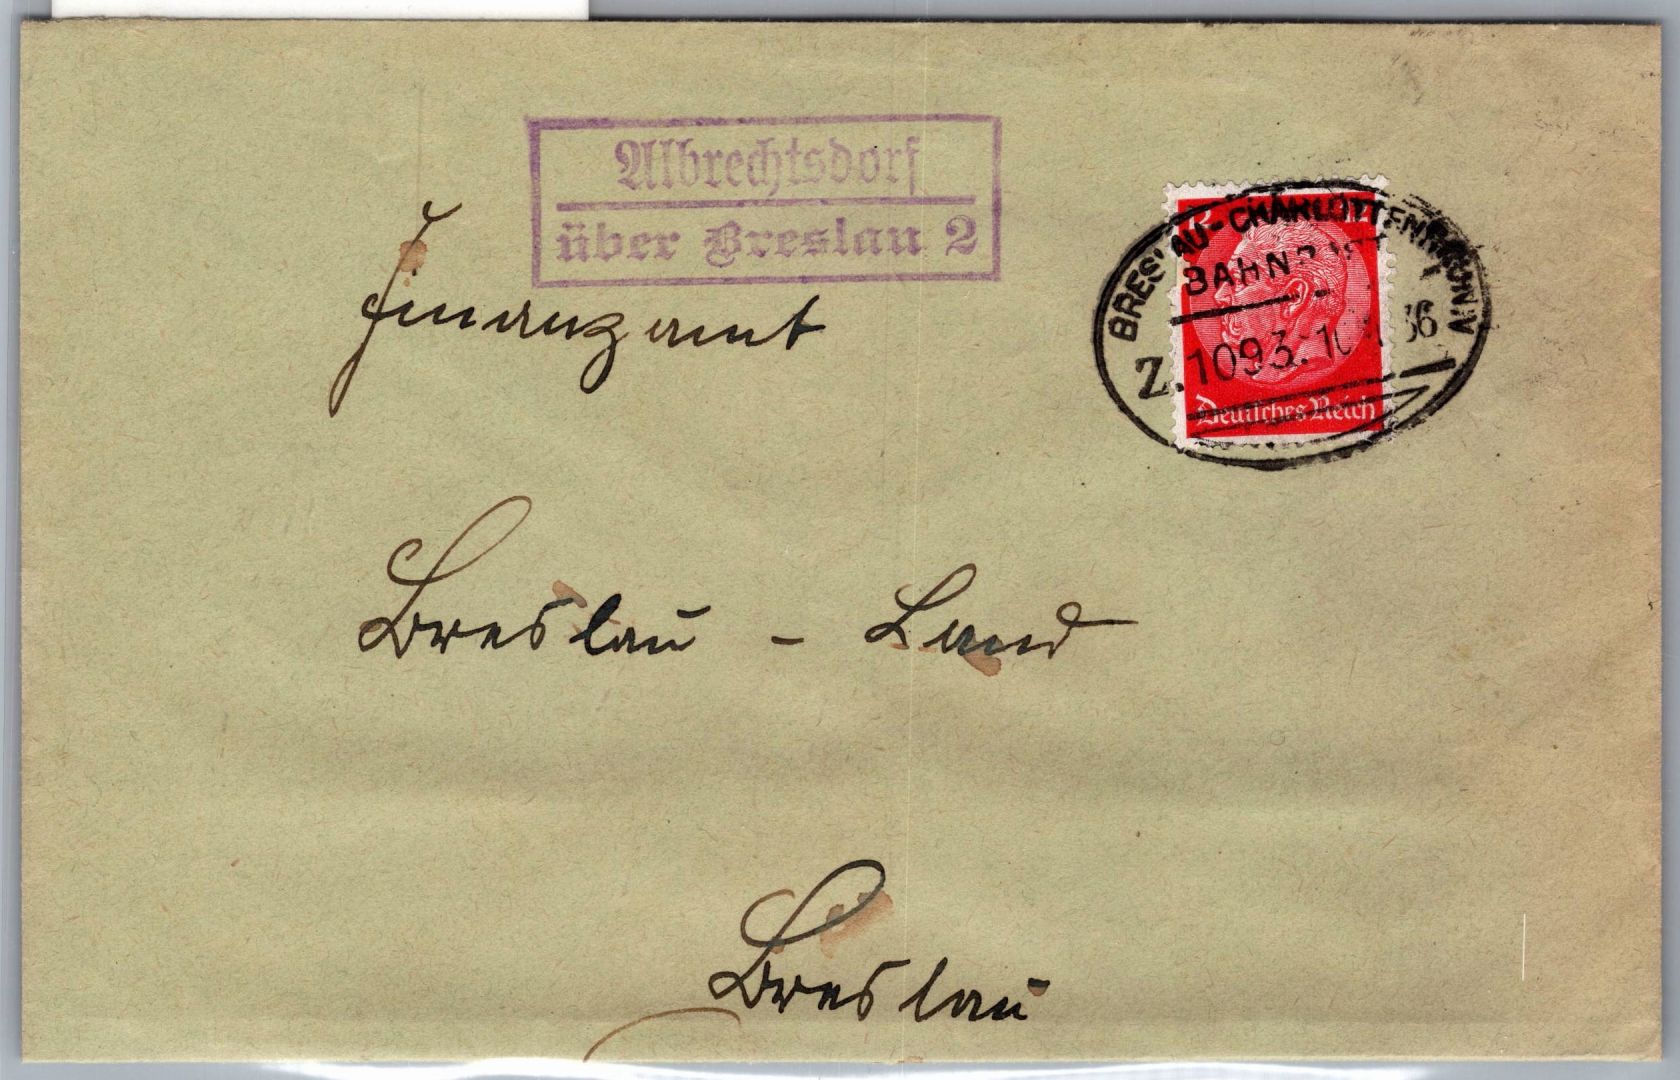 Albrechtsdorf
über Breslau 2
BRESLAU-CHARLOTTENBRUNN
BAHNPOST
Z.1093.
36
Deutsches Reich
Finanzamt
Breslau - Land
Breslau